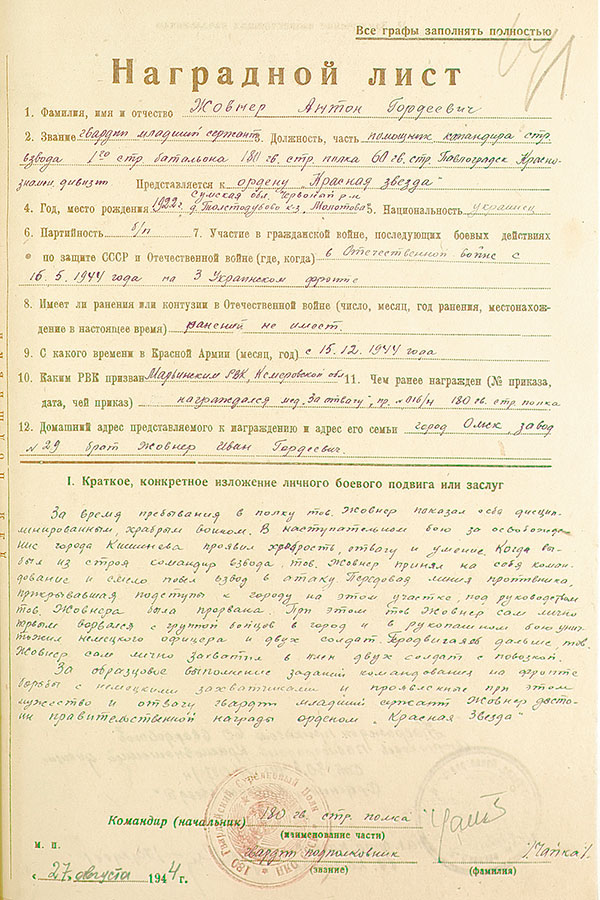 Все графы заполнять полностью
Наградной лист
1. Фамилия, имя и отчество Жовнер Антон Гордеевич
2. Звание гвардии младший сержант 3. Должность, часть помощник командира стр.
взвода 1го стр. батальона 180 гв. стр. полка 60 гв. стр. Павлоградск Красно-
знамен. дивизии Представляется к ордену „Красная звезда"
Сумская обл. Червоный р-н
4. Год, место рождения 1922г. д. Толстодубово к-з. Молотова 5. Национальность украинец
6. Партийность б/п 7. Участие в гражданской войне, последующих боевых действиях
по защите СССР и Отечественной войне (где, когда) в Отечественной войне с
16.5.1944 года на 3 Украинском фронте
8. Имеет ли ранения или контузии в Отечественной войне (число, месяц, год ранения, местонахож-
дение в настоящее время) ранений не имеет.
9. С какого времени в Красной Армии (месяц, год) с 15.12.1944 года
10. Каким РВК призван РВК, Кемеровской обл 11. Чем ранее награжден (№ приказа,
дата, чей приказ) награждался мед. „За отвагу", пр. №016/н 180 гв. стр. полка
12. Домашний адрес представляемого к награждению и адрес его семьи город Омск, завод
№29 брат Жовнер Иван Гордеевич.
I. Краткое, конкретное изложение личного боевого подвига или заслуг
За время пребывания в полку тов. Жовнер показал себя дисцип-
линированным, храбрым воином. В наступательном бою за освобожде-
ние города Кишинева проявил храбрость, отвагу и умение. Когда вы-
был из строя командир взвода, тов. Жовнер принял на себя коман-
дование и смело повел взвод в атаку. Передовая линия противника,
прикрывавшая подступы к городу на этом участке, под руководством
тов. Жовнера была прорвана. При этом тов Жовнер сам лично
первым ворвался с группой бойцов в город и в рукопашном бою унич-
тожил немецкого офицера и двух солдат. Продвигаясь дальше, тов.
Жовнер сам лично захватил в плен двух солдат с повозкой.
За образцовое выполнение заданий командования на фронте
борьбы с немецкими захватчиками и проявленные при этом
мужество и отвагу гвардии младший сержант Жовнер досто-
ин правительственной награды орденом „Красная Звезда"
Командир (начальник) 180 гв. стр. полка
(наименование части)
гвардии подполковник /Чайка/.
м. п. (звание) (фамилия)
« 27 » августа 1944 г.